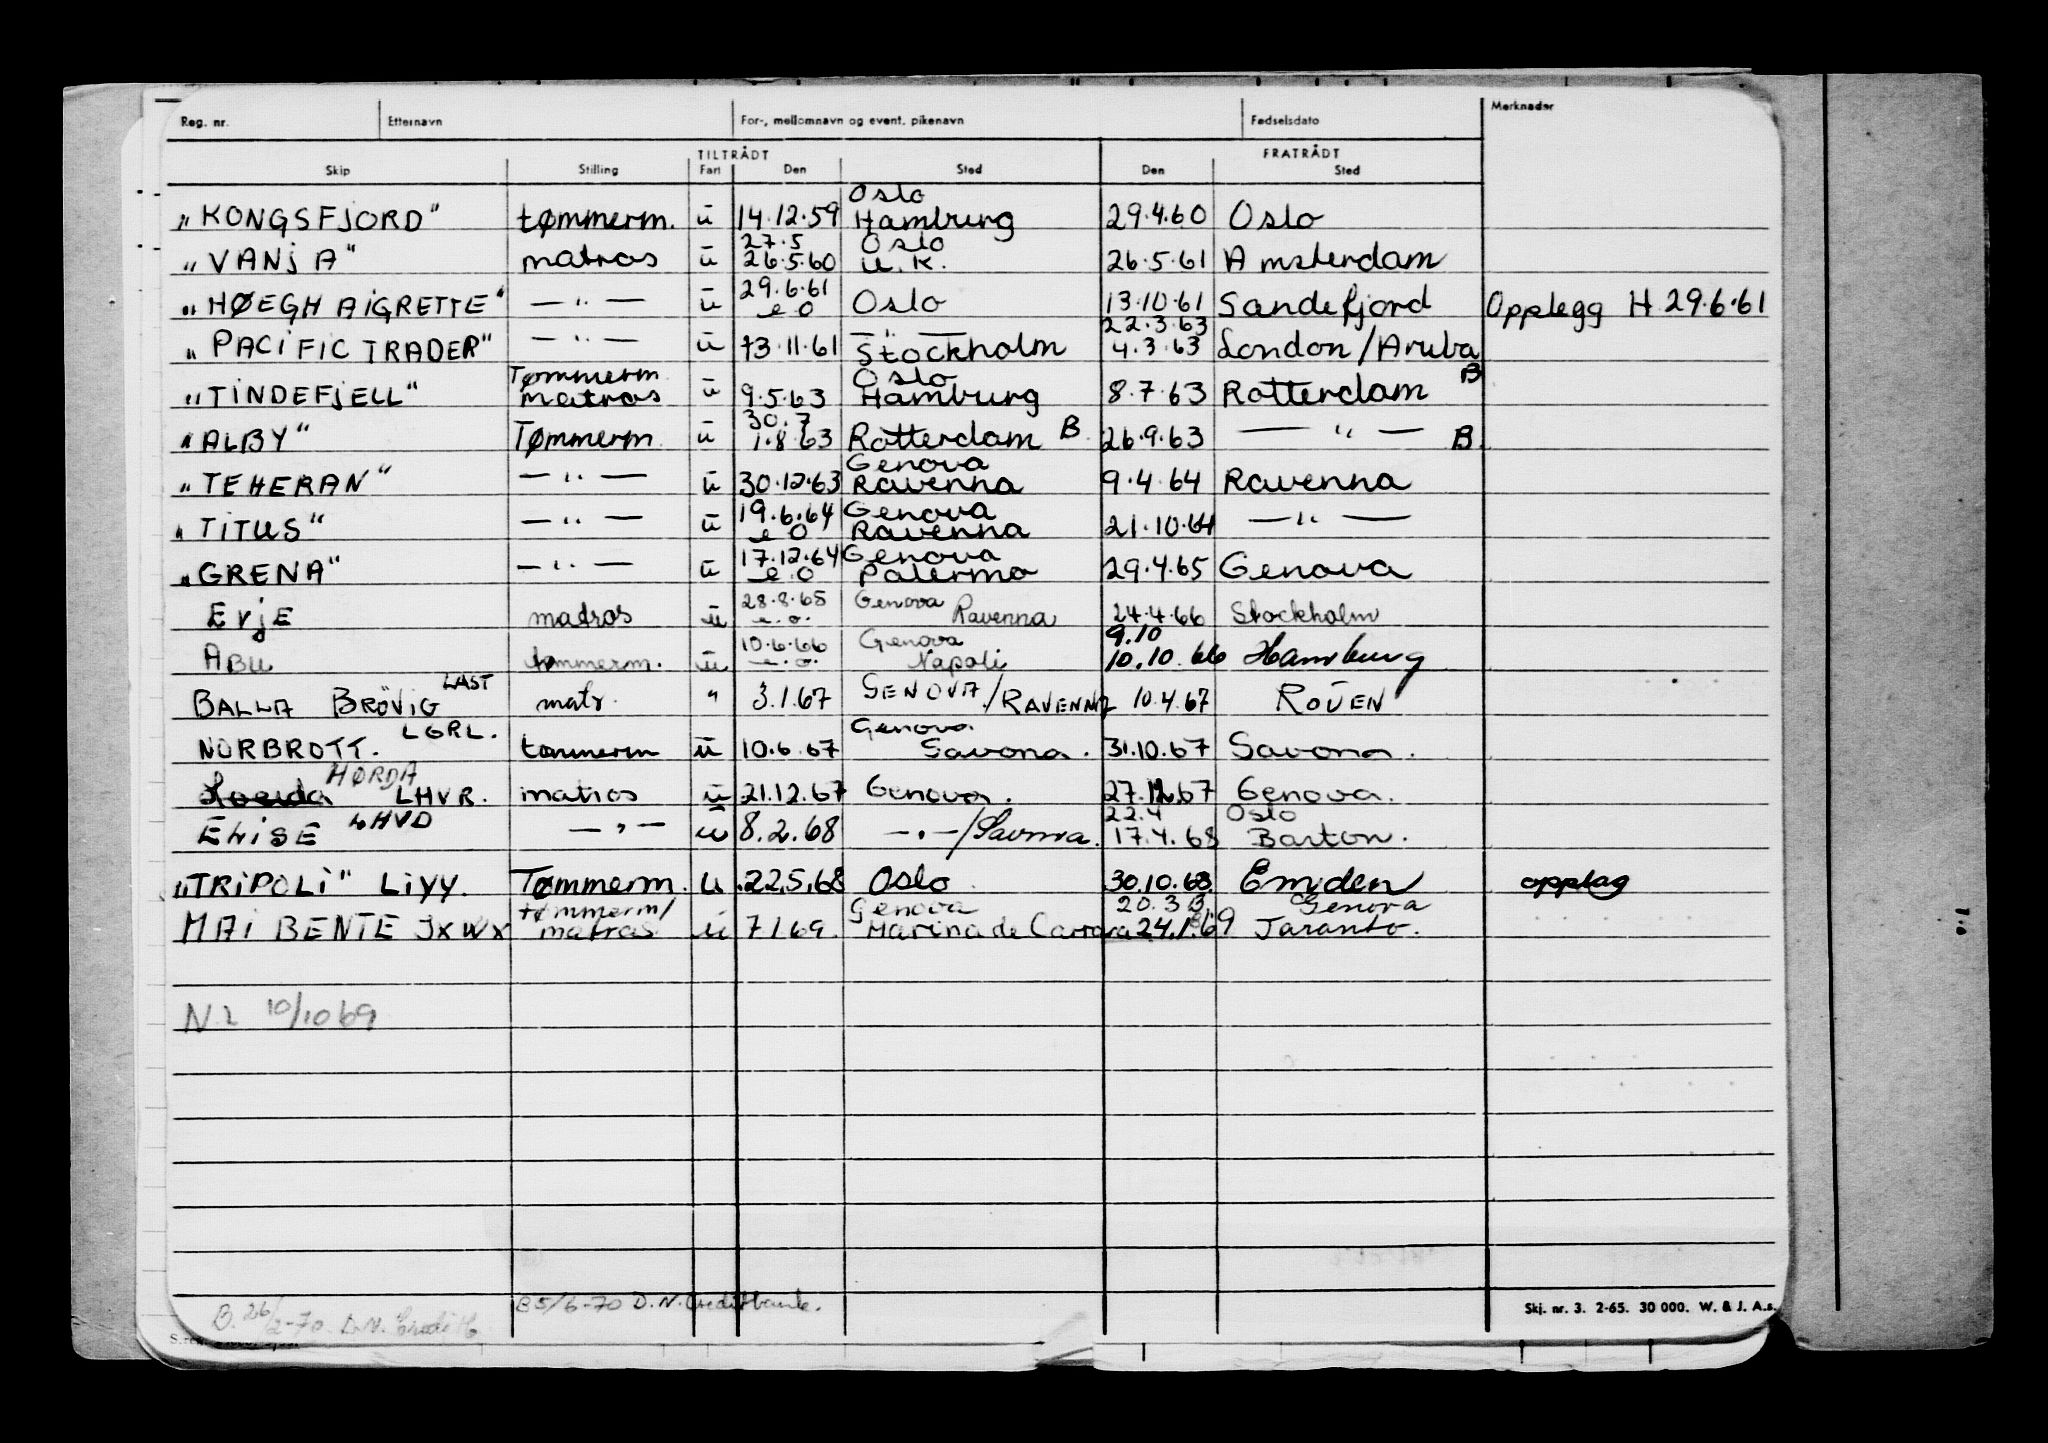 Reg. nr. Etternavn For-, mellomnavn og event. pikenavn Fødselsdato Merknader
TILTRÅDT FRATRÅDT
Skip Stilling Fart Den Sted Den Sted
Oslo
„KONGSFJORD" tømmerm. ū 14.12.59 Hamburg 29.4.60 Oslo
27.5 Oslo
„VANJA" matros ū 26.5.60 U.K. 26.5.61 Amsterdam
29.6.61
„HØEGH AIGRETTE" — " — ū e O Oslo 13.10.61 Sandefjord Opplegg H 29.6.61
22.3.63
„PACIFIC TRADER" — " — ū 13.11.61 Stockholm 4.3.63 London/Aruba
Tømmerm. Oslo B
„TINDEFJELL" matros ū 9.5.63 Hamburg 8.7.63 Rotterdam
30.7
„ALBY" Tømmerm. ū 1.8.63 Rotterdam B 26.9.63 — " — B
Genova
„TEHERAN" — " — ū 30.12.63 Ravenna 9.4.64 Ravenna
19.6.64 Genova
„TITUS" — " — ū e O Ravenna 21.10.64 — " —
17.12.64 Genova
„GRENA" — " — ū e.O Palermo 29.4.65 Genova
28.8.65 Genova
Evje matros ū e.o. Ravenna 24.4.66 Stockholm
10.6.66 Genova 9.10
ABU tømmerm. ū e.o. Napoli 10.10.66 Hamburg
LAST
BALLA BRÖVIG matr. " 3.1.67 GENOVA/RAVENNA 10.4.67 ROUEN
LGRL. Genova
NORBROTT. tømmerm ū 10.6.67 Savona. 31.10.67 Savona.
HØRDA
LHVR. matros ū 21.12.67 Genova. 27.12.67 Genova.
LHVD 22.4 Oslo
ELISE — " — ū 8.2.68 — " —/Savona. 17.4.68 Barton.
„TRIPOLI" LIYY. Tømmerm. u 22.5.68 Oslo 30.10.68 Emden opplag
tømmerm/ Genova 20.3 B Genova
MAI BENTE JXWX matros ū 7.1.69 Marina de Carrara 24.1.69 Taranto.
N.L 10/10 69
B. 26/2-70 D.N. Creditb. B 5/6-70 D.N. Creditbank.
Skj. nr. 3. 2-65. 30 000. W. & J. A.s.